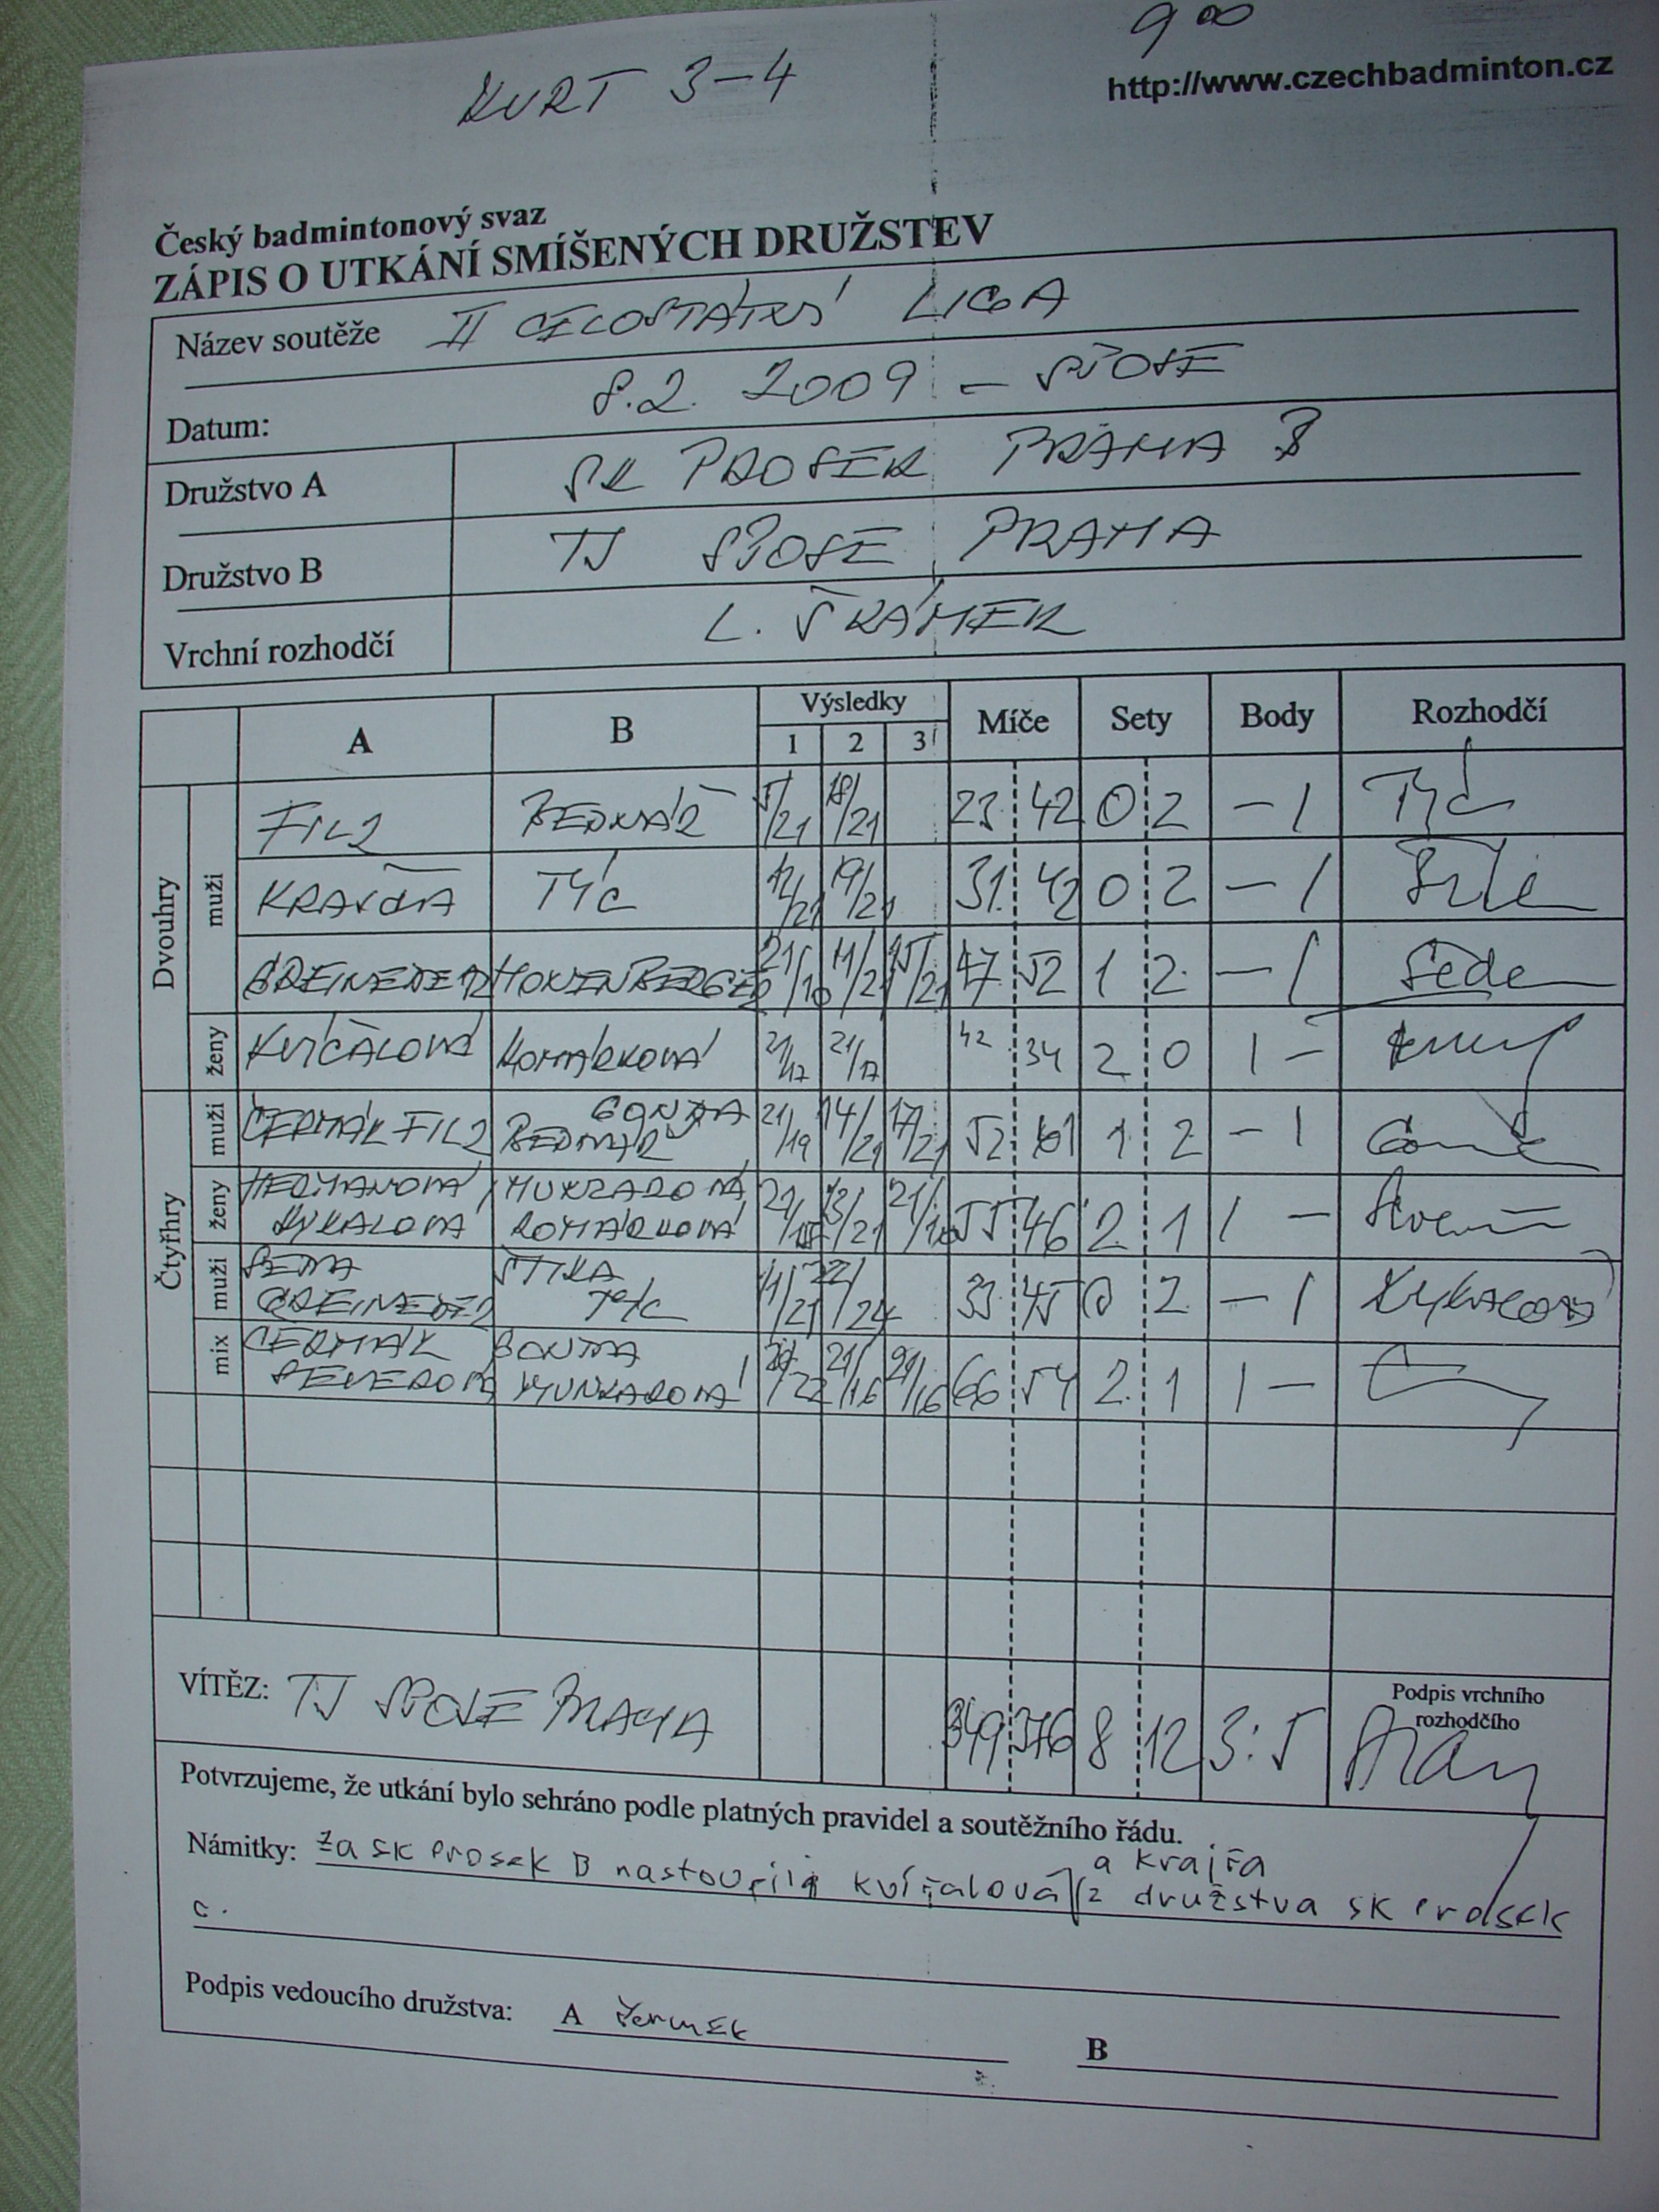 9 00
KURT 3-4
http://www.czechbadminton.cz
Český badmintonový svaz
ZÁPIS O UTKÁNÍ SMÍŠENÝCH DRUŽSTEV
Název soutěže II CELOSTÁTNÍ LIGA
Datum: 8.2. 2009 - SPOJE
Družstvo A SK PROSEK PRAHA B
Družstvo B TJ SPOJE PRAHA
Vrchní rozhodčí L. ŠRÁMEK
A B Výsledky 1 2 3 Míče Sety Body Rozhodčí
Dvouhry
muži
FILZ BEDNÁŘ 5/21 18/21 23 42 0 2 - 1 Týč
TÝČ 12/21 19/21 31 42 0 2 - 1
GREINEDER HOHENBERGER 21/10 11/21 15/21 47 52 1 2 - 1
ženy KVÍČALOVÁ KOMÁRKOVÁ 21/17 21/17 42 34 2 0 1 -
Čtyřhry
muži ČERMÁK FILZ GONDA BEDNÁŘ 21/19 14/21 17/21 52 61 1 2 - 1
ženy HEŘMANOVÁ 21/ 13/21 21/10 55 46 2 1 1 -
KOMÁRKOVÁ
muži ŠTIKA 11/21 22/24 33 45 0 2 - 1
GREINEDER TÝČ
mix ČERMÁK GONDA /22 21/16 21/16 66 54 2 1 1 -
VÍTĚZ: TJ SPOJE PRAHA 349 376 8 12 3:5
Podpis vrchního
rozhodčího
Potvrzujeme, že utkání bylo sehráno podle platných pravidel a soutěžního řádu.
Námitky: za SK Prosek B nastoupila Kvíčalová a Krajča z družstva SK Prosek
C.
Podpis vedoucího družstva: A Čermák B